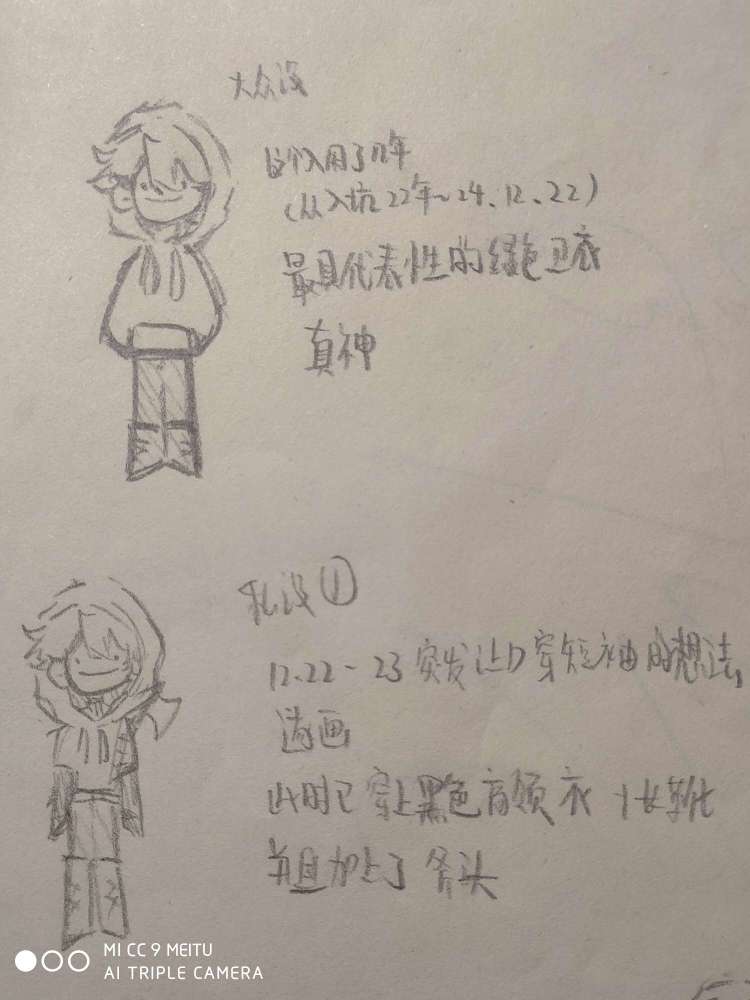 大众设
这个人用了几年
(从入坑22年~24.12.22)
最具代表性的绿色卫衣
真神
私设①
12.22-23突发让D穿短袖的想法,
遂画
此时已穿上黑色高领衣+长靴
并且加上了斧头
MI CC 9 MEITU
AI TRIPLE CAMERA